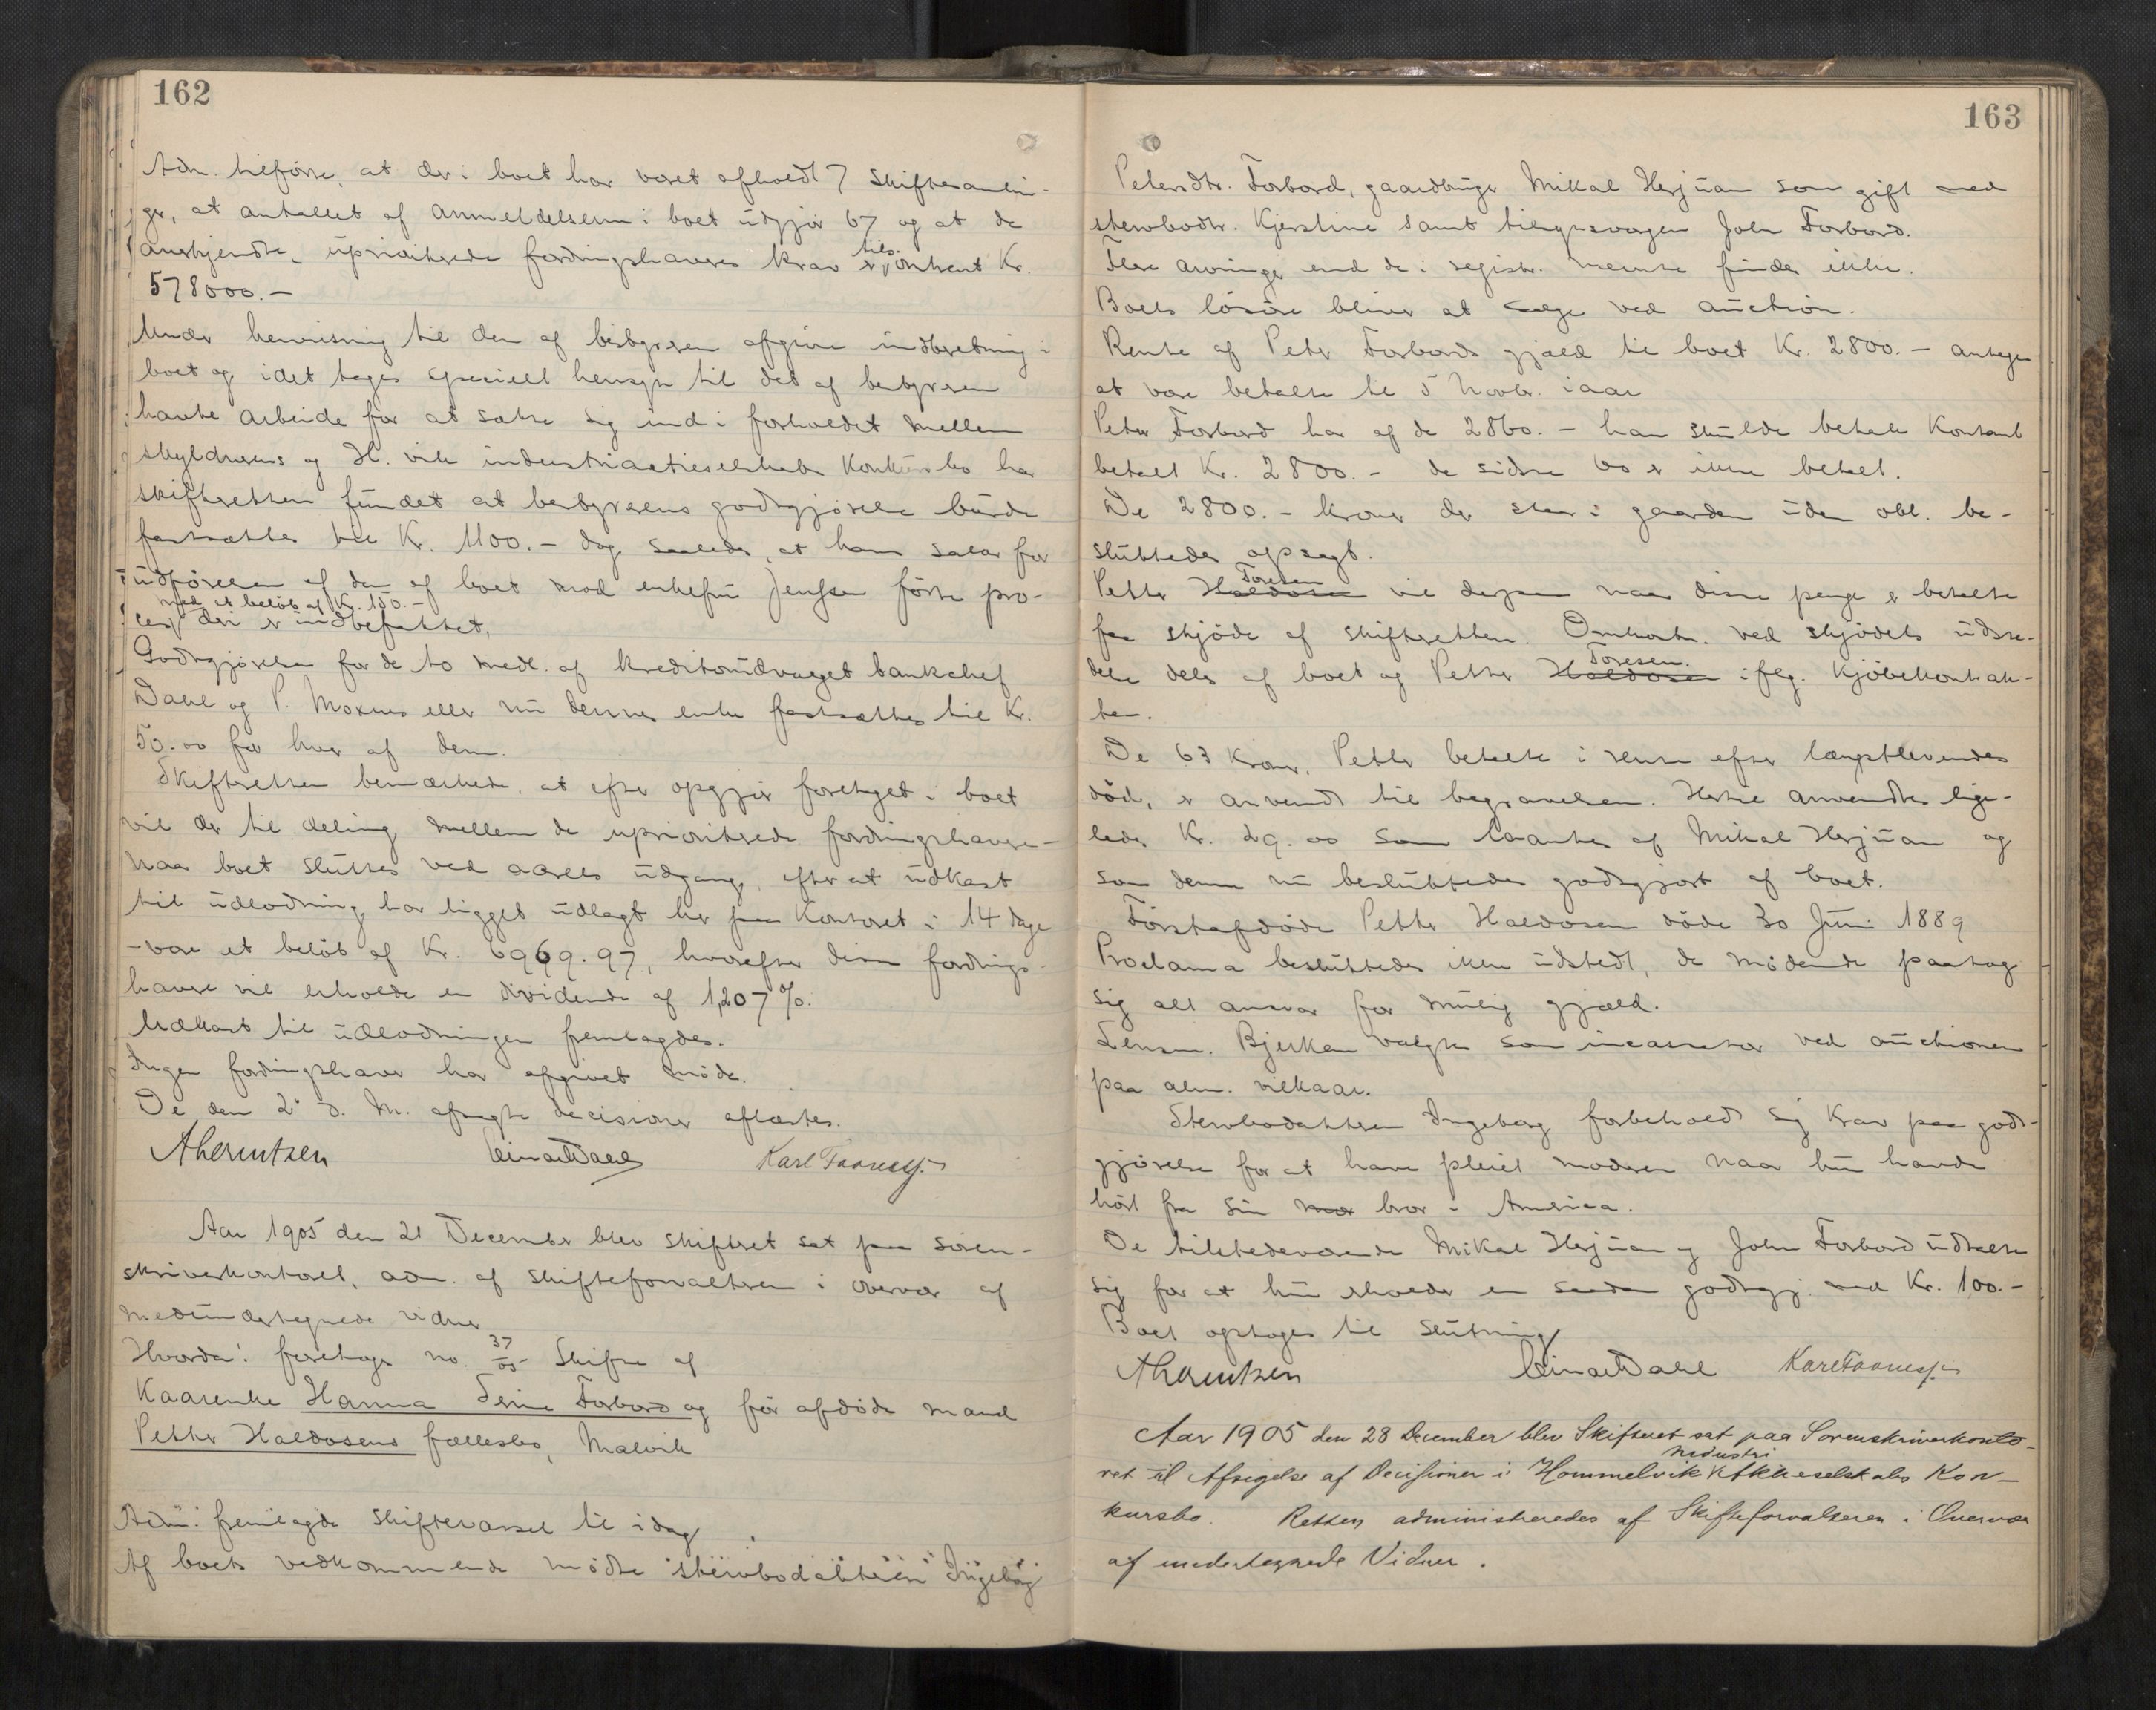 162
Adm. tilførte, at der i boet har været afholdt 7 skiftesamlin-
ger, at antallet af anmeldelserne i boet udgjør 67 og at de
anerkjendte, uprioriterede fordringshaveres krav er tils. omtrent Kr.
578000.-
Under henvisning til den af bestyreren afgivne indberetning i
boet og idet tages specielt hensyn til det af bestyreren
havte arbeide for at sætte sig ind i forholdet mellem
skyldnerens og H.vik industriactieselskabs konkursbo har
skifteretten fundet at bestyrerens godtgjørelse burde
fastsættes til Kr. 1100.- dog saaledes, at hans salær for
udførelsen af den af boet mod enkefru Jenssen førte pro-
med et beløb af Kr. 150.-
ces deri er indbefattet.
Godtgjørelsen for de to medl. af kreditorudvalget bankchef
Dahl og P. Moxnes eller nu dennes enke fastsættes til Kr.
50.00 for hver af dem.
Skifteretten bemærkede, at efter opgjør foretaget i boet
vil der til deling mellem de uprioriterede fordringshavere -
naar boet sluttes ved aarets udgang, efter at udkast
til udlodning har ligget udlagt her paa kontoret i 14 dage
- være et beløb af Kr. 6969.97, hvorefter disse fordrings-
havere vil erholde en dividende af 1,207 %.
Udkast til udlodningen fremlagdes.
Ingen fordringshaver har afgivet møde.
De den 2' d. M. afsagte decisioner oplæstes.
A Berntzen Einar Dahl Karl Faanes jr.
Aar 1905 den 21 December blev skifteret sat paa soren-
skriverkontoret, adm. af skifteforvalteren i overvær af
medundertegnede vidner
Hvorda: foretoges no. 37/05 Skifte af
Kaarenke Hanna Serine Forbord og før afdøde mand
Petter Haldosens fællesbo, Malvik
Adm. fremlagde skiftevarsel til idag
Af boets vedkommende mødte stervbodatteren Ingeborg
163
Petersdtr. Forbord, gaardbruger Mikal Herjuan som gift med
stervbodtr. Kjerstine samt tilsynsvergen John Forbord.
Flere arvinger end de i registr. nævnte findes ikke.
Boets løsøre bliver at sælge ved auction.
Rente af Peter Forbords gjæld til boet Kr. 2800.- antages
at være betalte til 5 Novbr. iaar
Peter Forbord har af de 2860.- han skulde betale kontant
betalt Kr. 2800.- de sidste 60 er ikke betalt.
De 2800.- kroner der staar i gaarden uden obl. be-
sluttedes opsagt.
Petter Haldosen Toresen vil derpaa naar disse penge er betalte
faa skjøde af skifteretten. Omkostn. ved skjødets udste-
delse deles af boet og Petter Haldosen Toresen. ifølg. kjøbekontrak-
ten.
De 63 kroner, Petter betalte i rente efter længstlevendes
død, er anvendt til begravelsen. Hertil anvendtes lige-
ledes Kr. 29.00 som laantes af Mikal Herjuan og
som denne nu besluttedes godtgjort af boet.
Førstafdøde Petter Haldosen døde 30 Juni 1889
Proclama besluttedes ikke udstedt, de mødende paatog
sig alt ansvar for mulig gjæld.
Lensm. Bjerkan valgtes som incassator ved auctionen
paa alm. vilkaar.
Stervbodatteren Ingeborg forbeholdt sig krav paa godt-
gjørelse for at have pleiet moderen naar hun havde
hørt fra sin mor bror i America.
De tilstedeværende Mikal Herjuan og John Forbord udtalte
sig for at hun erholder en saadan godtgj. med Kr. 100.-
Boet optoges til slutning
A Berntzen Einar Dahl Karl Faanes jr.
Aar 1905 den 28 December blev Skifteret sat paa Sorenskriverkonto-
ret til Afsigelse af Decisioner i Hommelvik Industri Aktieselskabs Kon-
kursbo. Retten administreredes af Skifteforvalteren i Overvær
af undertegnede Vidner.